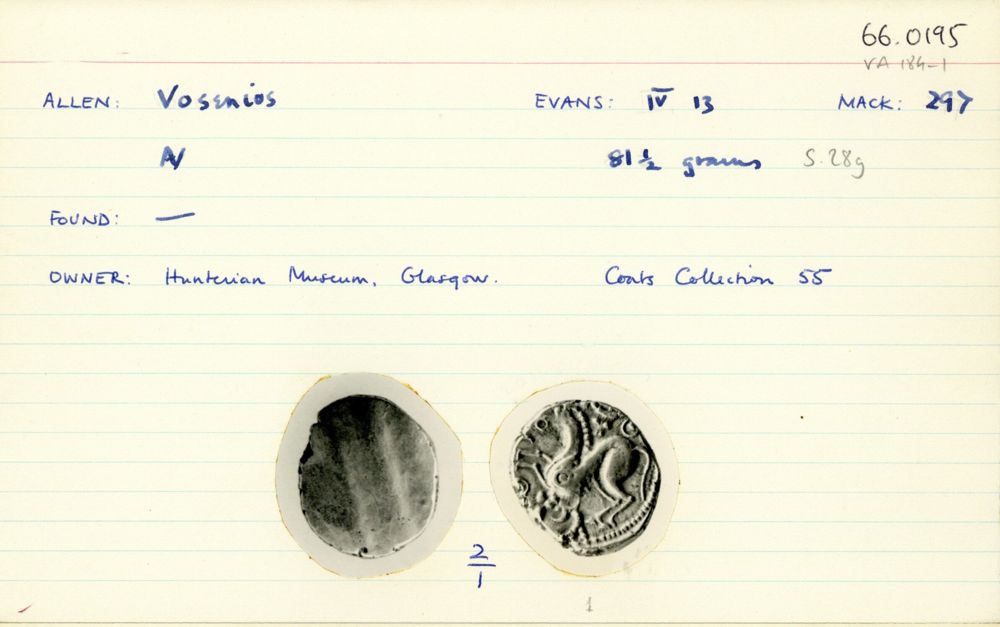 66.0195
VA 184-1
ALLEN: Vosenios EVANS: IV 13 MACK: 297
AV 81 ½ grains 5.28g
FOUND: —
OWNER: Hunterian Museum, Glasgow. Coats Collection 55
2/1
1